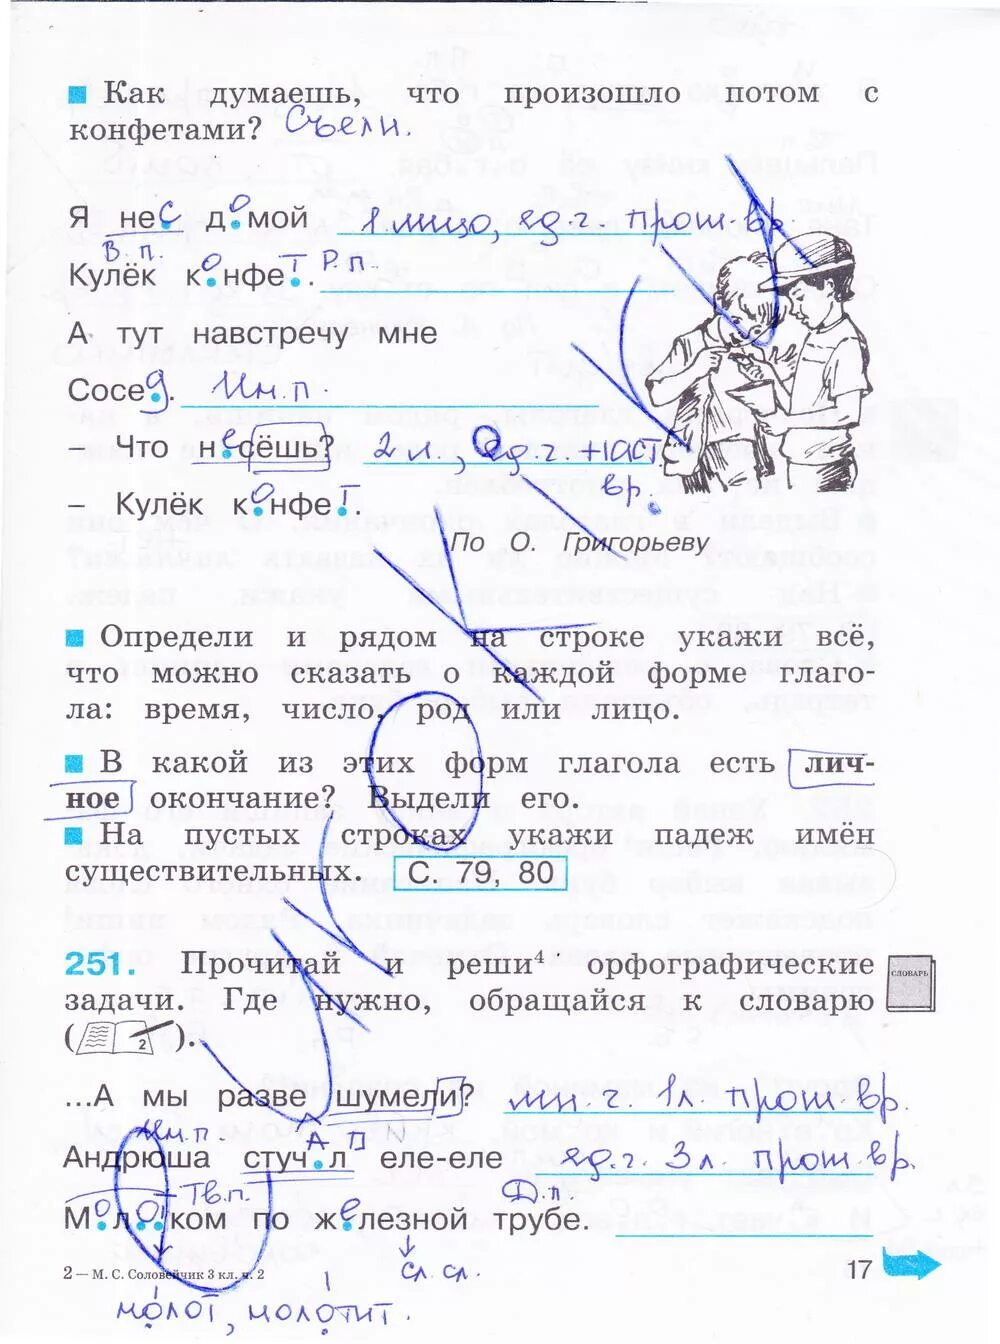 Как думаешь, что произошло потом с
конфетами? Съели.
Я нес домой 1 лицо, ед.ч. прош. вр.
В.п.
Кулёк конфет. Р.п.
А тут навстречу мне
Сосед. Им.п.
Что несёшь? 2 л., ед.ч. наст.
вр.
– Кулёк конфет.
По О. Григорьеву
Определи и рядом на строке укажи всё,
что можно сказать о каждой форме глаго-
ла: время, число, род или лицо.
В какой из этих форм глагола есть лич-
ное окончание? Выдели его.
На пустых строках укажи падеж имён
существительных. С. 79, 80
251. Прочитай и реши4 орфографические
задачи. Где нужно, обращайся к словарю
СЛОВАРЬ
( 2 ).
...А мы разве шумели? мн.ч. 1л. прош. вр.
Им.п.
Андрюша стучАл еле-еле ед.ч. 3л. прош. вр.
Тв.п. Д.п.
Молотком по железной трубе.
сл. сл.
2 – М. С. Соловейчик 3 кл. ч. 2
17
молот, молотит.